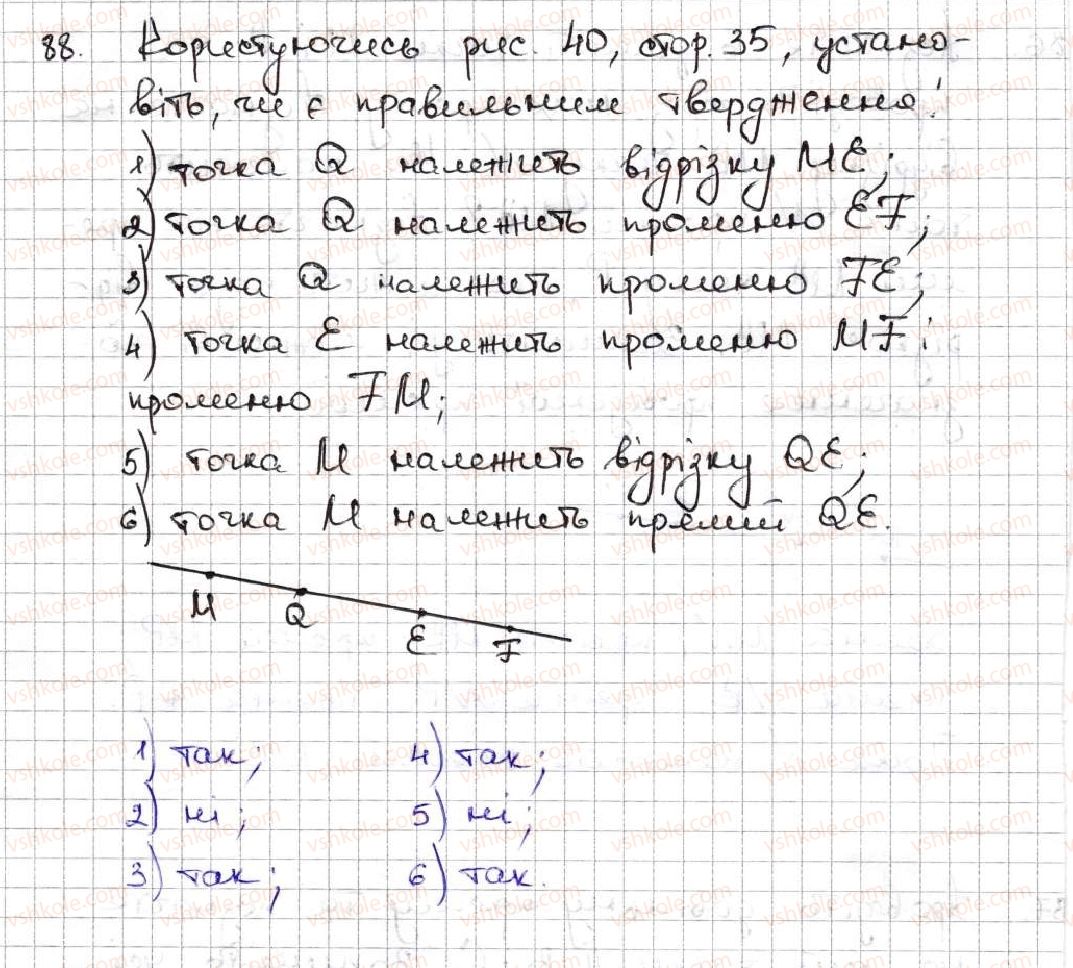 88. Користуючись рис. 40, стор. 35, устано-
віть, чи є правильним твердження:
1) точка Q належить відрізку ME;
2) точка Q належить променю EF;
3) точка Q належить променю FE;
4) точка E належить променю MF і
променю FM;
5) точка M належить відрізку QE;
6) точка M належить прямій QE.
M Q E F
1) так; 4) так;
2) ні; 5) ні;
3) так; 6) так.
vshkole.com